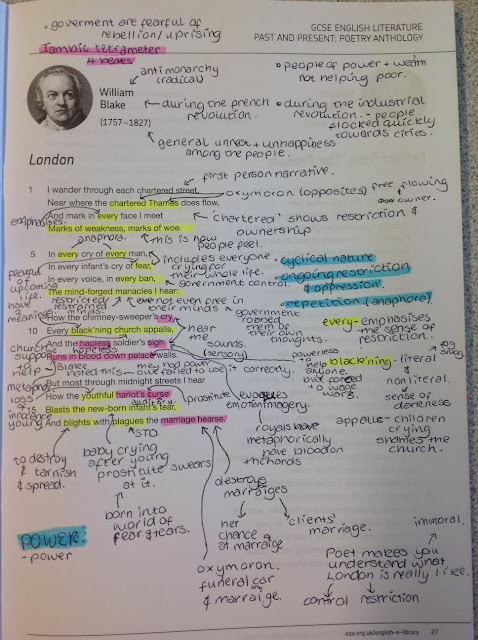 • goverment are fearful of
rebellion/uprising
GCSE ENGLISH LITERATURE
PAST AND PRESENT: POETRY ANTHOLOGY
Iambic tetrameter
4 beats
anti monarchy
(radical)
• people of power + wealth
not helping poor.
William
Blake
(1757–1827)
during the french
revolution.
• during the industrial
revolution. - people
flocked quickly
towards cities.
general unrest + unhappiness
among the people.
London
first person narrative.
1 I wander through each chartered street,
oxymoron (opposites) free flowing
owner.
Near where the chartered Thames does flow,
And mark in every face I meet
'chartered' shows restriction &
ownership.
emphasises
Marks of weakness, marks of woe.
anaphora.
this is how
people feel.
5 In every cry of every man,
includes everyone
• cyclical nature
In every infant's cry of fear,
crying for
their whole life.
• ongoing restriction
& oppression.
In every voice, in every ban,
government control
• repetition (anaphora)
The mind-forged manacles I hear:
fearful
of
upcoming
life.
have
2
meanings
restricted
restrained
minds
are not even free in
their minds
government
robbed
them of
their own
thoughts.
every- emphasises
the sense of
restriction.
How the chimney-sweeper's cry
10 Every black'ning church appals,
hear
me
And the hapless soldier's sigh
hopeless
sounds.
(sensory)
Runs in blood down palace walls.
church
support
help
Blake
hated this
they had power
but failed to use it correctly.
powerless
to help
anyone.
but forced
to wage
wars.
black'ning - literal
&
nonliteral.
sense of
darkness
But most through midnight streets I hear
How the youthful harlot's curse
auditory
prostitute
evokes
emotion imagery.
15 Blasts the new-born infant's tear,
And blights with plagues the marriage hearse.
metaphor
loss
of
innocence
young
royals have
metaphorically
have blood on
the hands
appals - children
crying
shames the
church.
to destroy
& tarnish
& spread.
STD
baby crying
after young
prostitute swears
at it.
born into
world of
fear & tears.
destroys
marraiges
her
chance
at marraige
clients'
marraige.
immoral.
POWER:
- power
oxymoron
funeral car
& marraige.
Poet makes you
understand what
London is really like.
control
restriction
aqa.org.uk/english-e-library 27